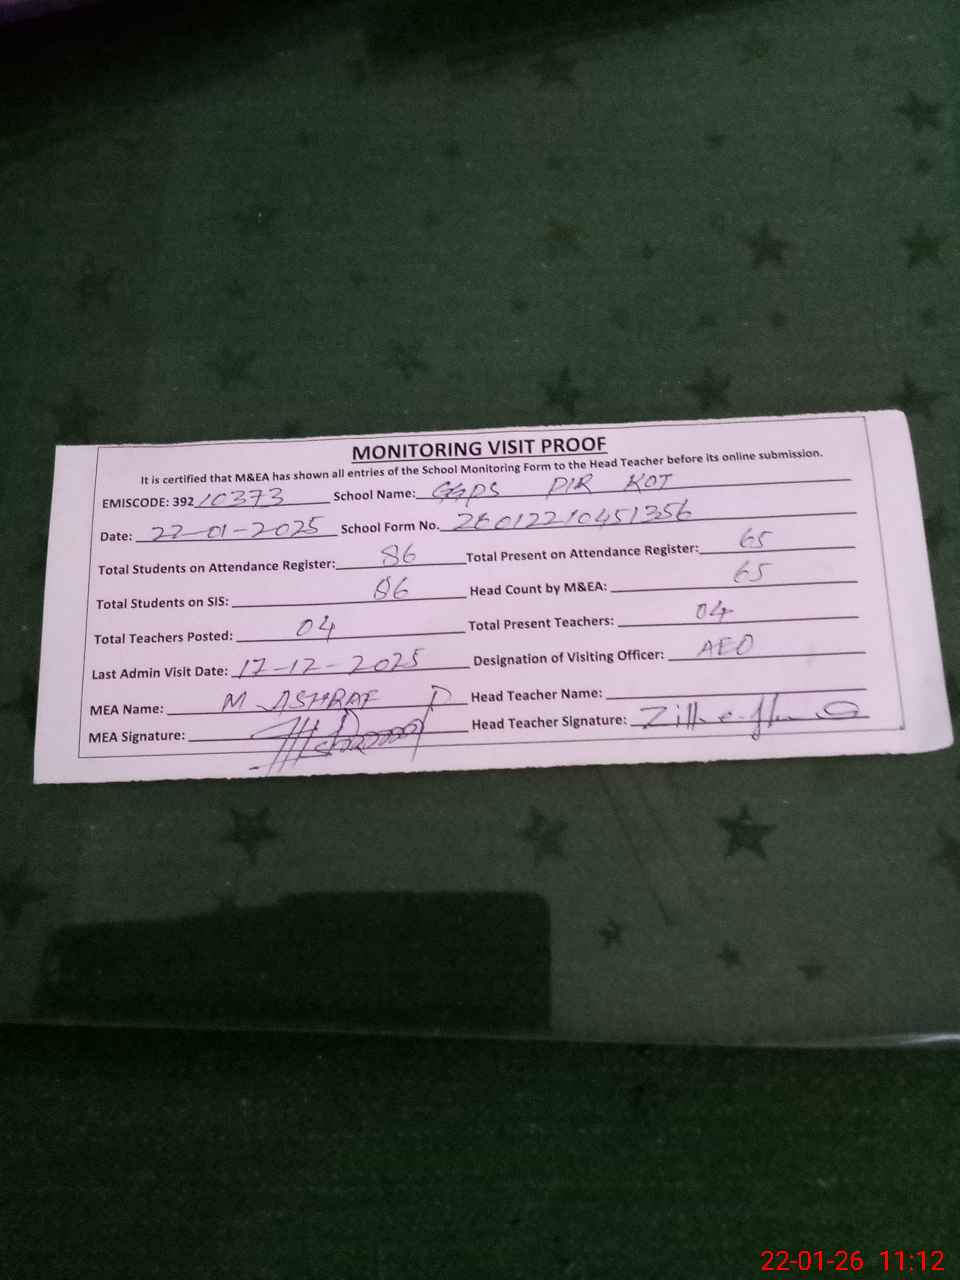 MONITORING VISIT PROOF
It is certified that M&EA has shown all entries of the School Monitoring Form to the Head Teacher before its online submission.
EMISCODE: 392 10373 School Name: GGPS PIR KOT
Date: 22-01-2025 School Form No. 26012210451356
Total Students on Attendance Register: 86 Total Present on Attendance Register: 65
Total Students on SIS: 86 Head Count by M&EA: 65
Total Teachers Posted: 04 Total Present Teachers: 04
Last Admin Visit Date: 17-12-2025 Designation of Visiting Officer: AEO
MEA Name: M ASHRAF Head Teacher Name:
MEA Signature: Head Teacher Signature:
22-01-26 11:12